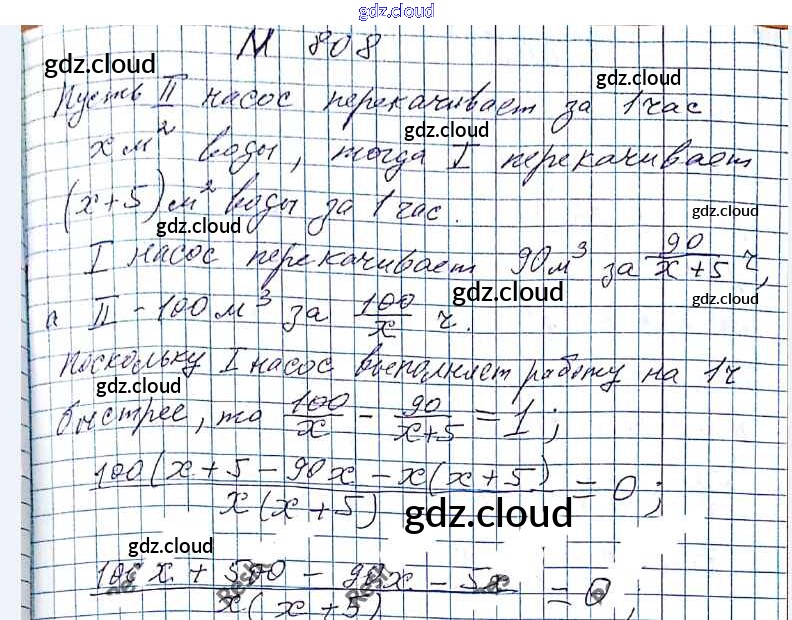 gdz.cloud
№ 808
gdz.cloud
Пусть II насос перекачивает за 1 час
gdz.cloud
x м² воды, тогда I перекачивает
gdz.cloud
(x+5) м² воды за 1 час.
gdz.cloud
I насос перекачивает 90 м³ за 90/(x+5) ч,
gdz.cloud
gdz.cloud
а II - 100 м³ за 100/x ч.
Поскольку I насос выполняет работу на 1 ч
gdz.cloud
быстрее, то 100/x - 90/(x+5) = 1;
(100(x+5 - 90x - x(x+5))/(x(x+5)) = 0;
gdz.cloud
gdz.cloud
(100x + 500 - 90x - 5x)/(x(x+5)) = 0;